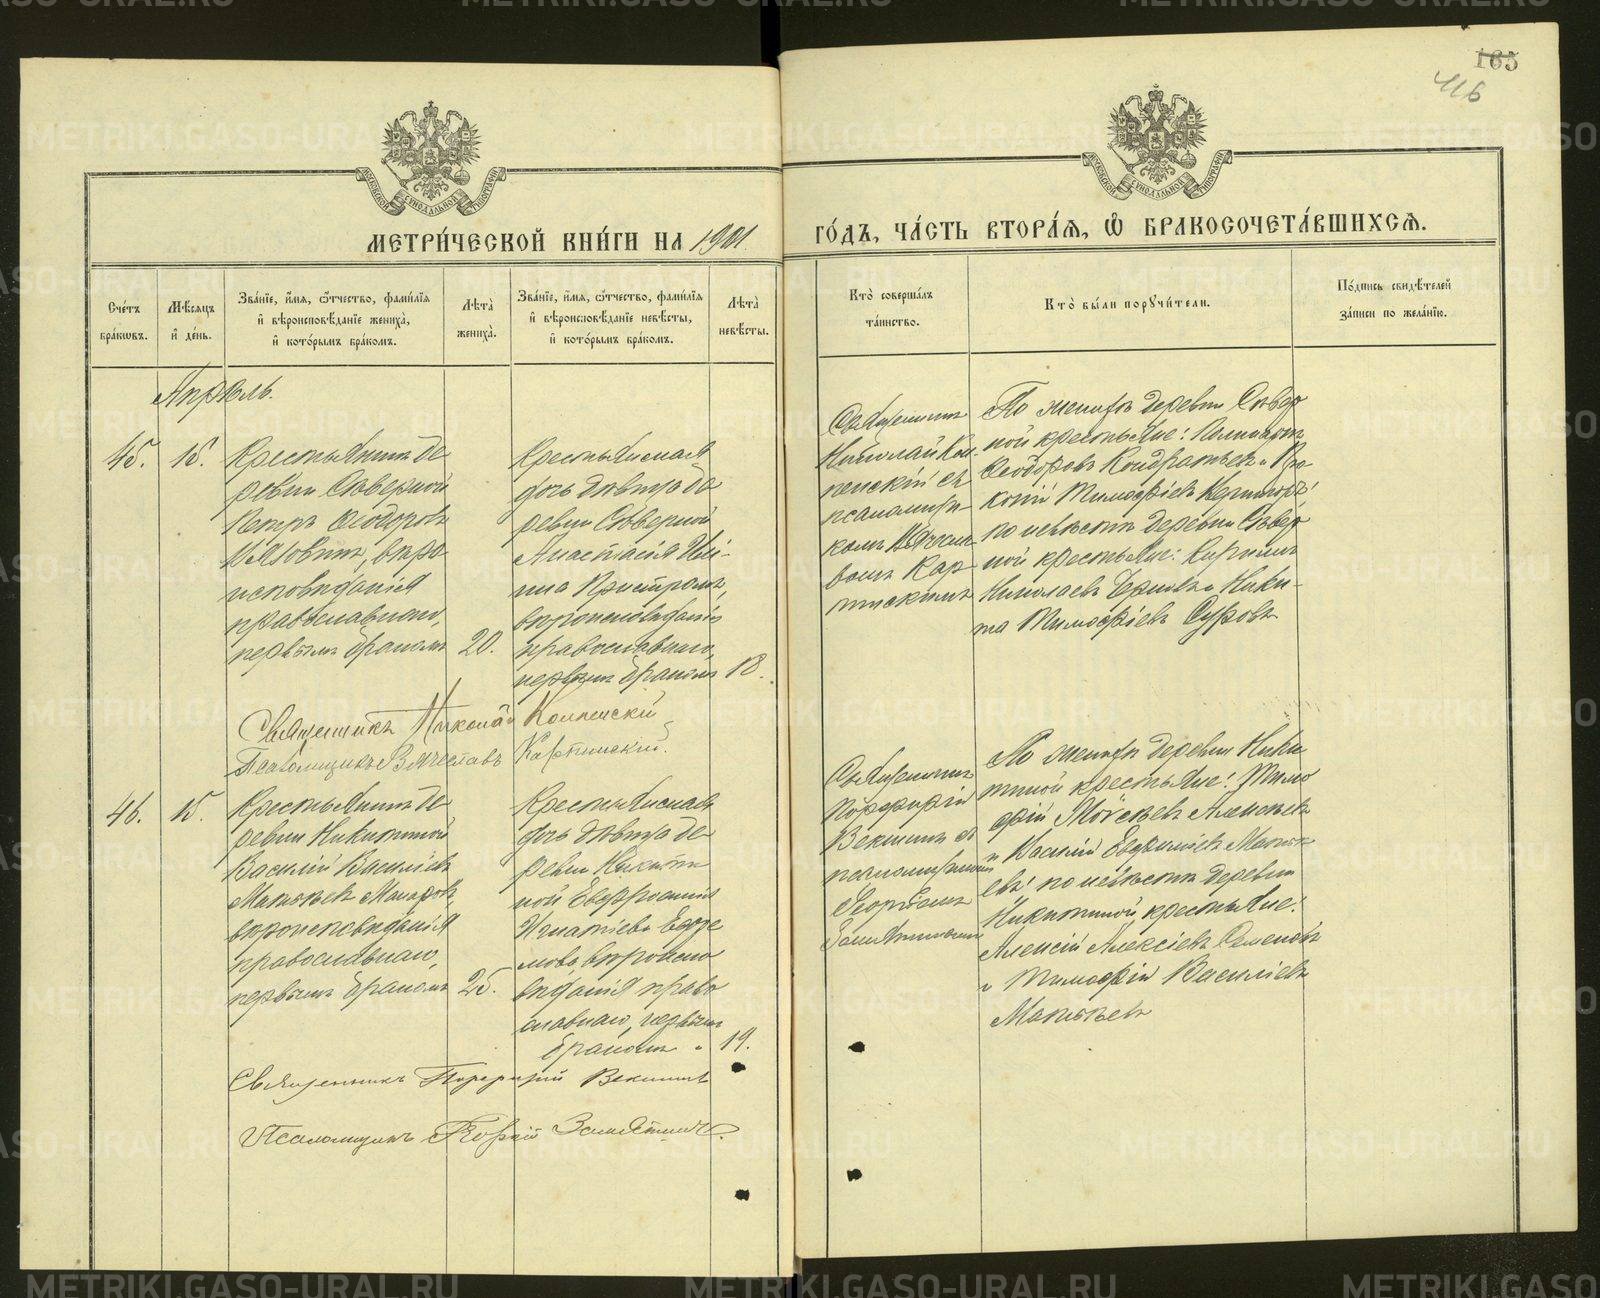 165
116
МОСКОВСКОЙ СѴНОДАЛЬНОЙ ТИПОГРАФІИ
МОСКОВСКОЙ СѴНОДАЛЬНОЙ ТИПОГРАФІИ
МЕТРИ́ЧЕСКОЙ КНИ́ГИ НА 1901
ГО́ДЪ, ЧА́СТЬ ВТОРА́Ѧ, Ѽ БРАКОСОЧЕТА́ВШИХСѦ.
Сче́тъ
бра́кωвъ.
Мѣ́сяцъ
и҆ де́нь.
Зва́нїе, и҆́мя, ѻ҆́тчество, фами́лїя
и҆ вѣроисповѣ́данїе жениха̀,
и҆ кото́рымъ бра́комъ.
Лѣта̀
жениха̀.
Зва́нїе, и҆́мя, ѻ҆́тчество, фами́лїя
и҆ вѣроисповѣ́данїе невѣ́сты,
и҆ кото́рымъ бра́комъ.
Лѣта̀
невѣ́сты.
Кто̀ соверша́лъ
та́инство.
Кто̀ бы́ли порꙋчи́тели.
По́дпись свидѣ́телей
за́писи по жела́нїю.
Апрѣль.
45.
15.
Крестьянинъ де
ревни Сѣверной
Петръ Ѳеодоровъ
вѣро
исповѣданія
православнаго,
первымъ бракомъ
20.
Крестьянская
дочь дѣвица де
ревни Сѣверной
Анастасія Или-
на
вѣроисповѣданія
православнаго,
первымъ бракомъ
18.
Священникъ
Николай Кол-
пенскій съ
псаломщи-
комъ Вячесла-
вомъ Кар
пинскимъ
По женихѣ деревни Сѣвер
ной крестьяне:
Ѳеодоровъ Кондратьевъ и Про
копій Тимофѣевъ
по невѣстѣ деревни Сѣвер
ной крестьяне:
Николаевъ и Ники-
та Тимофѣевъ Суровъ
Священникъ Николай
Псаломщикъ Вячеславъ
46.
15.
Крестьянинъ де
ревни Никитиной
Василій Василіевъ
вѣроисповѣданія
православнаго,
первымъ бракомъ
25.
Крестьянская
дочь дѣвица де
ревни Никити
ной Евфросинія
Игнатіева Ефре
мова, вѣроиспо
вѣданія право
славнаго, первымъ
бракомъ
19.
Священникъ
Порфирій
Векшинъ съ
псаломщикомъ
Георгіемъ
Замятнинымъ
По женихѣ деревни Ники
тиной крестьяне: Тимо
фій Моѵсеевъ Алексѣевъ
и Василій Евфиміевъ Матвѣ
евъ: по невѣстѣ деревни
Никитиной крестьяне:
Алексій Алексіевъ Семеновъ
и Тимофій Василіевъ
Матвѣевъ
Священникъ Порфирій Векшинъ
Псаломщикъ
METRIKI.GASO-URAL.RU